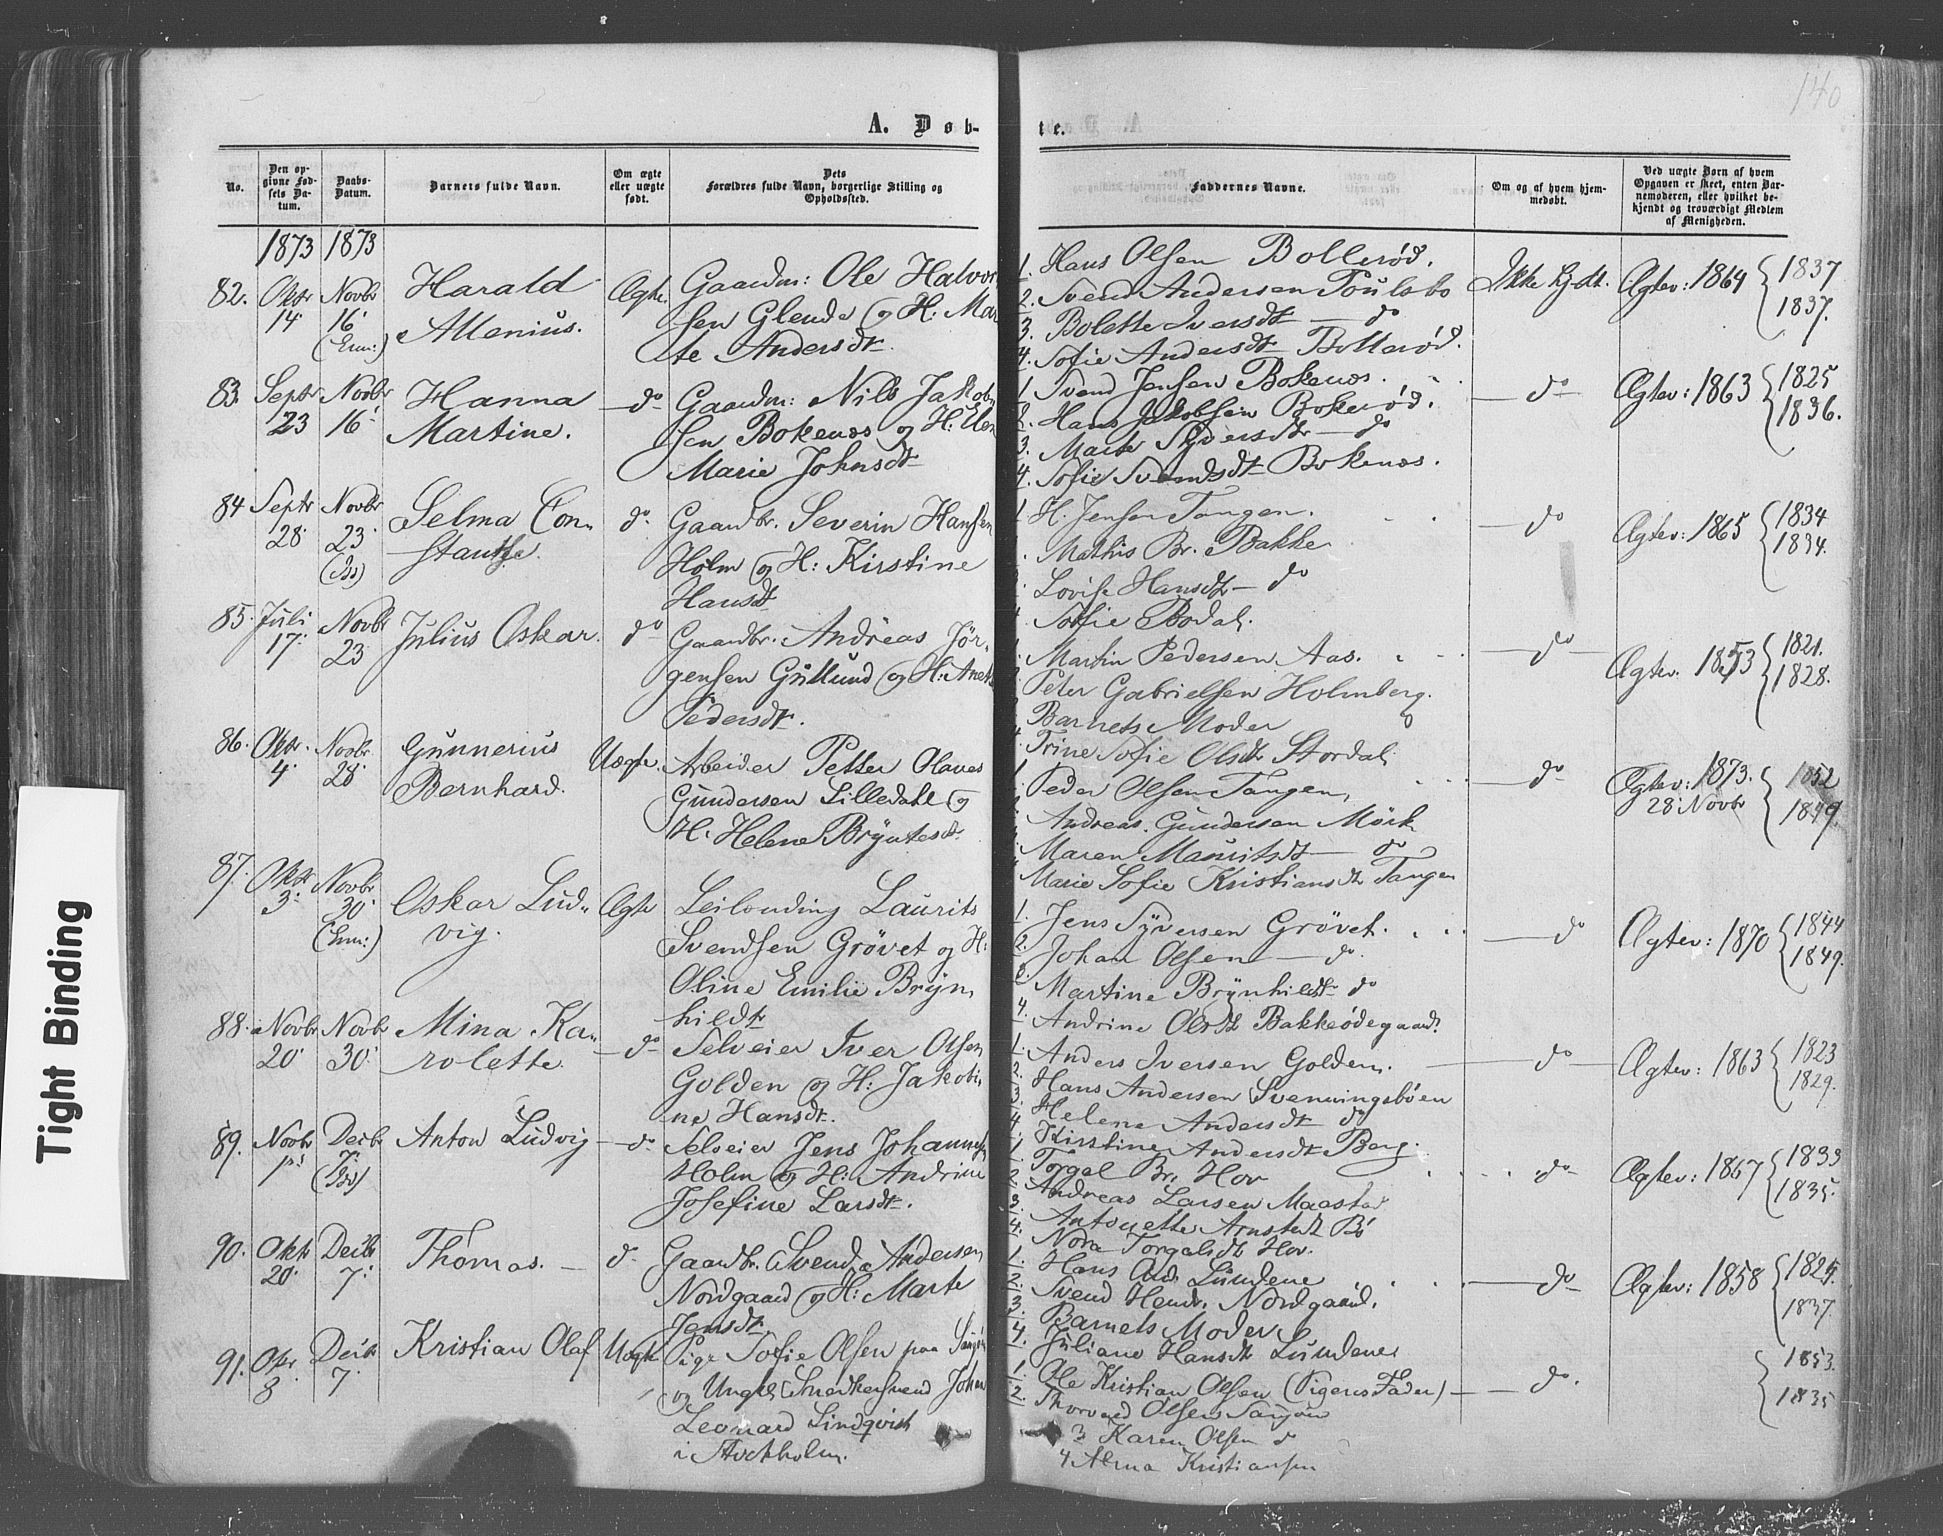 140
A. Døb-
te.
No.
Den op-
givne Fød-
sels Da-
tum.
Daabs-
Datum.
Barnets fulde Navn.
Om ægte
eller uægte
født.
Dets
Forældres fulde Navn, borgerlige Stilling og
Opholdssted.
Faddernes Navne.
Om og af hvem hjem-
medøbt.
Ved uægte Børn af hvem
Opgaven er skeet, enten Bar-
nemoderen, eller hvilket be-
kjendt og troværdigt Medlem
af Menigheden.
1873 1873
82.
Oktr
14
Novbr
16
(Enn:)
Harald
Allenius.
Ægte.
Gaardm: Ole Halvor
sen Glende og H. Mar
te Andersdt.
1. Hans Olsen Bollerød.
2. Svend Andersen Poulsbo
3. Bolette Iversdt — do
4. Sofie Andersdt Bollerød.
Ikke hjdt.
Ægtev: 1864
1837
1837.
83.
Septr
23
Novbr
16
Hanna
Martine.
do
Gaardm: Nils Jakob
sen Bokenæs og H: Elen
Marie Johnsdt
1. Svend Jensen Bokenæs.
2. Hans Jakobsen Bokerød.
3. Marte Syversdt — do
4. Sofie Svendsdt Bokenæs.
do
Ægtev: 1863
1825
1836.
84
Septr
28
Novbr
23
(Bs)
Selma Con„
stantse.
do
Gaardbr. Severin Hansen
Holm og H: Kirstine
Hansdt
1 H. Jensen Tangen.
Mathis Br. Bakke
Lovise Hansdt — do
Sofie Bodal.
do
Ægtev: 1865
1834
1834.
85.
Juli
17.
Novbr
23
Julius Oskar.
do
Gaardbr. Andreas Jør„
gensen Gullund og H: Anet
Pedersdt.
Martin Pedersen Aas.
Peter Gabrielsen Holmberg.
Barnets Moder
Trine Sofie Olsdt Stordal.
do
Ægtev. 1853
1821.
1828.
86.
Oktr.
4.
Novbr.
28.
Gunnerius
Bernhard.
Uægte.
Arbeider Petter Olaves
Gundersen Lilledahl og
H. Helene Bryntesdt.
Peder Olsen Tangen,
Andreas Gundersen Mørk
Maren Mauritsdt — do
Marie Sofie Kristiansdt Tangen
do
Ægtev: 1873.
28. Novbr
1852
1849.
87.
Oktr
3.
Novbr
30.
(Enn:)
Oskar Lud„
vig.
Ægte
Leilending Laurits
Svendsen Grøvet og H:
Oline Emilie Bryn„
hildt
1. Jens Syversen Grøvet.
2. Johan Olsen — do.
3. Martine Brynhildt do
4. Andrine Olsdt Bakkeødegaard.
do
Ægtev: 1870
1844
1849.
88.
Novbr
20
Novbr
30.
Mina Ka„
rolette.
do
Selveier Iver Olsen
Golden og H: Jakobi„
ne Hansdt.
1. Anders Iversen Golden.
2. Hans Andersen Svenningsbøen
3. Helene Andersdt do
4. Kirstine Andersdt Berg.
do
Ægtev: 1863
1823
1829.
89.
Novbr
1
Decbr
7.
(Bs)
Anton Ludvig
do
Selveier Jens Johannes
Holm og H: Andrine
Josefine Larsdt.
1. Torgal Br. Hov
2. Andreas Larsen Maastad
3. Antonette Arnstedt Bø
4. Nora Torgalsdt Hov.
do
Ægtev: 1867
1833
1835.
90.
Oktr
20.
Decbr
7.
Thomas.
do
Gaardbr. Svend Andersen
Nordgaard og H: Marte
Jensdt
1. Hans And. Lundene
2. Svend Hendr. Nordgaard.
3. Barnets Moder
4. Juliane Hansdt Lundene
do
Ægtev: 1858
1825.
1837.
91.
Oktr
8
Decbr
7.
Kristian Olaf
Uægte
Pige Sofie Olsen paa
og Ungkl. Snedkersvend Johan
Leonard Lindqvist
i Stockholm.
1. Ole Kristian Olsen (Pigens Fader)
2. Thorvard Olsen
3 Karen Olsen do
4 Alma Kristiansen
do.
1853.
1835
Tight Binding